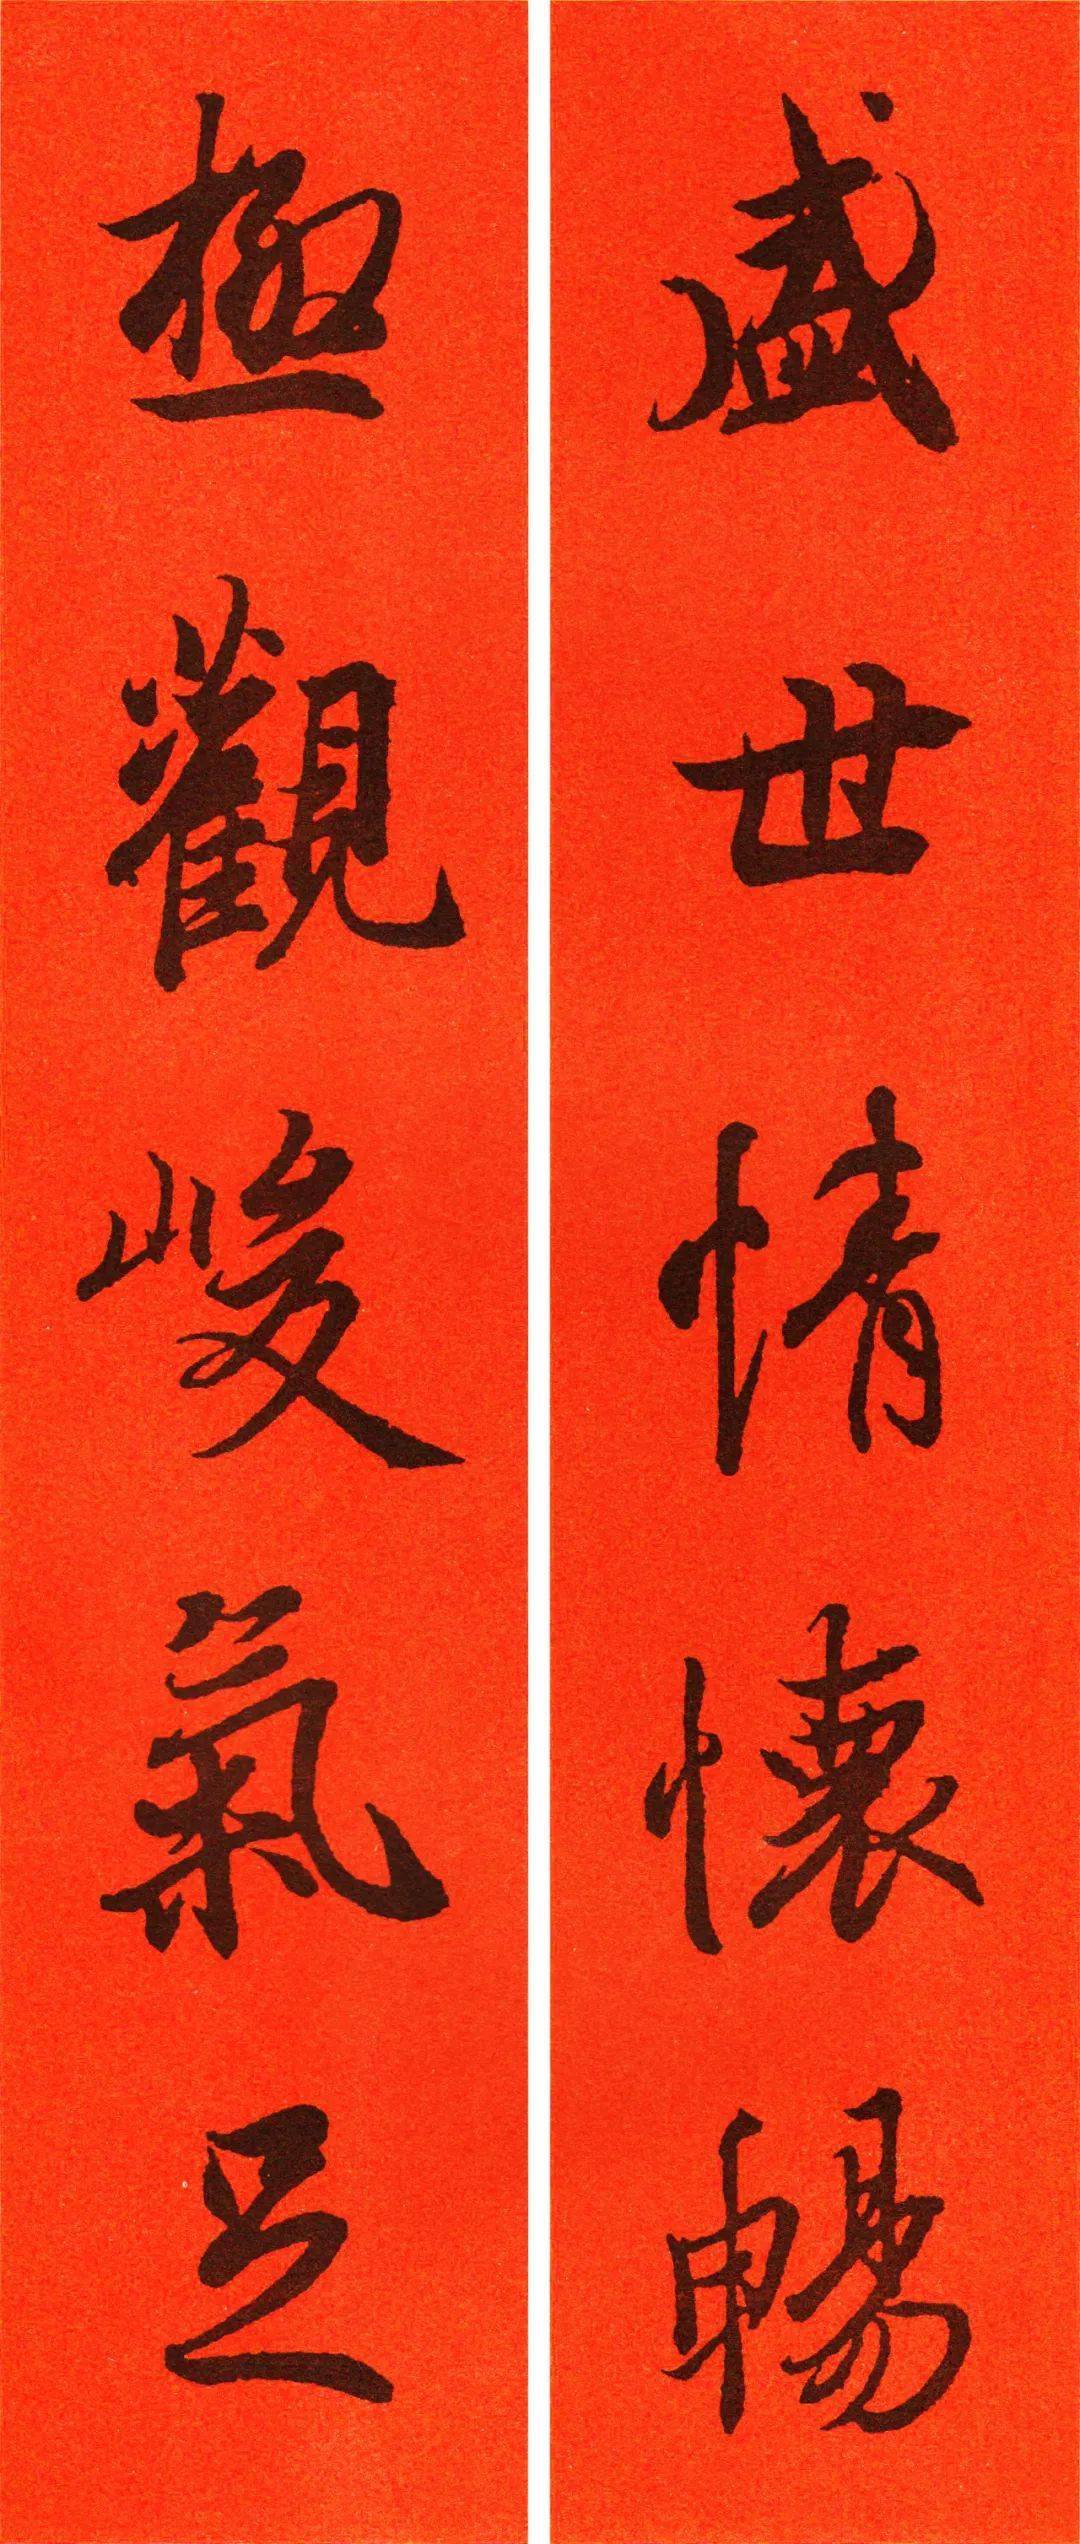 盛世情懷暢
極觀峻氣足